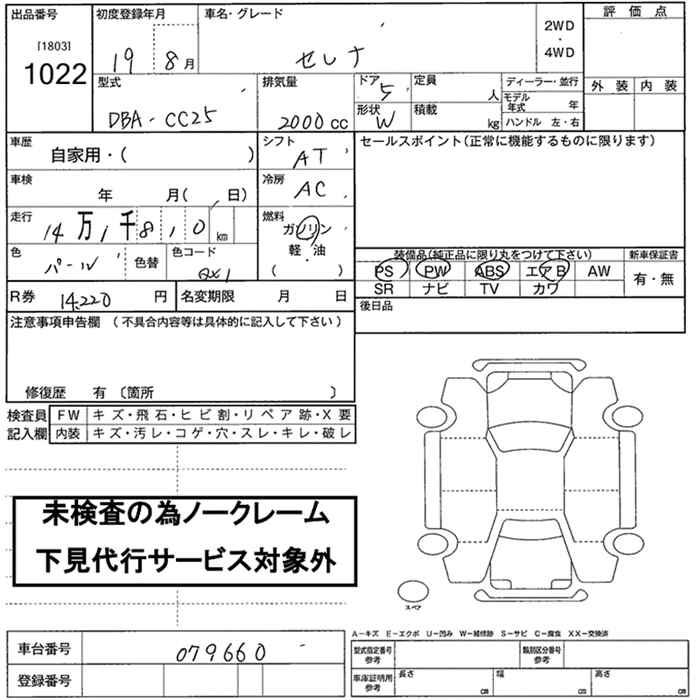 出品番号 初度登録年月 車名・グレード 2WD・4WD 評価点
[1803]
1022
19 8月 セレナ
型式 排気量 ドア 5 定員 人 ディーラー・並行 外装 内装
モデル年式 年
DBA-CC25 2000cc 形状 W 積載 kg ハンドル 左・右
車歴 自家用・( ) シフト AT セールスポイント(正常に機能するものに限ります)
車検 年 月( 日) 冷房 AC
走行 14万1千8,0 km 燃料 ガソリン
軽・油
( )
色 パール 色替 色コード QX1
装備品(純正品に限り丸をつけて下さい) 新車保証書
PS PW ABS エアB AW 有・無
SR ナビ TV カワ
R券 14,220 円 名変期限 月 日 後日品
注意事項申告欄(不具合内容等は具体的に記入して下さい)
修復歴 有 〔箇所 〕
検査員 FW キズ・飛石・ヒビ割・リペア跡・X要
記入欄 内装 キズ・汚レ・コゲ・穴・スレ・キレ・破レ
未検査の為ノークレーム
下見代行サービス対象外
スペア
A-キズ E-エクボ U-凹み W-補修跡 S-サビ C-腐食 XX-交換済
車台番号 079660 型式指定番号 参考 類別区分番号 参考
登録番号 車庫証明用 参考 長さ cm 幅 cm 高さ cm